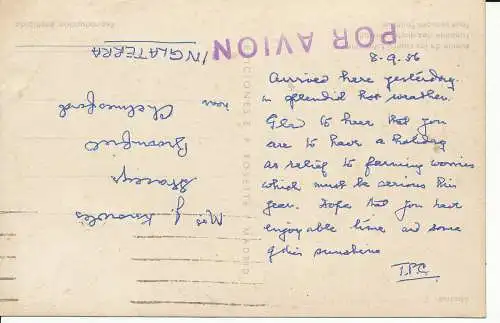 POR AVION
8-9.56
Arrived here yesterday
in splendid hot weather.
Glad to hear that you
are to have a holiday
as relief to farming worries
which must be serious this
year. Hope that you have
enjoyable time and some
golden sunshine
T.P.G.
Mrs J. Knowles
Staceys
Broomfield
near Chelmsford
INGLATERRA
EDICIONES
MADRID